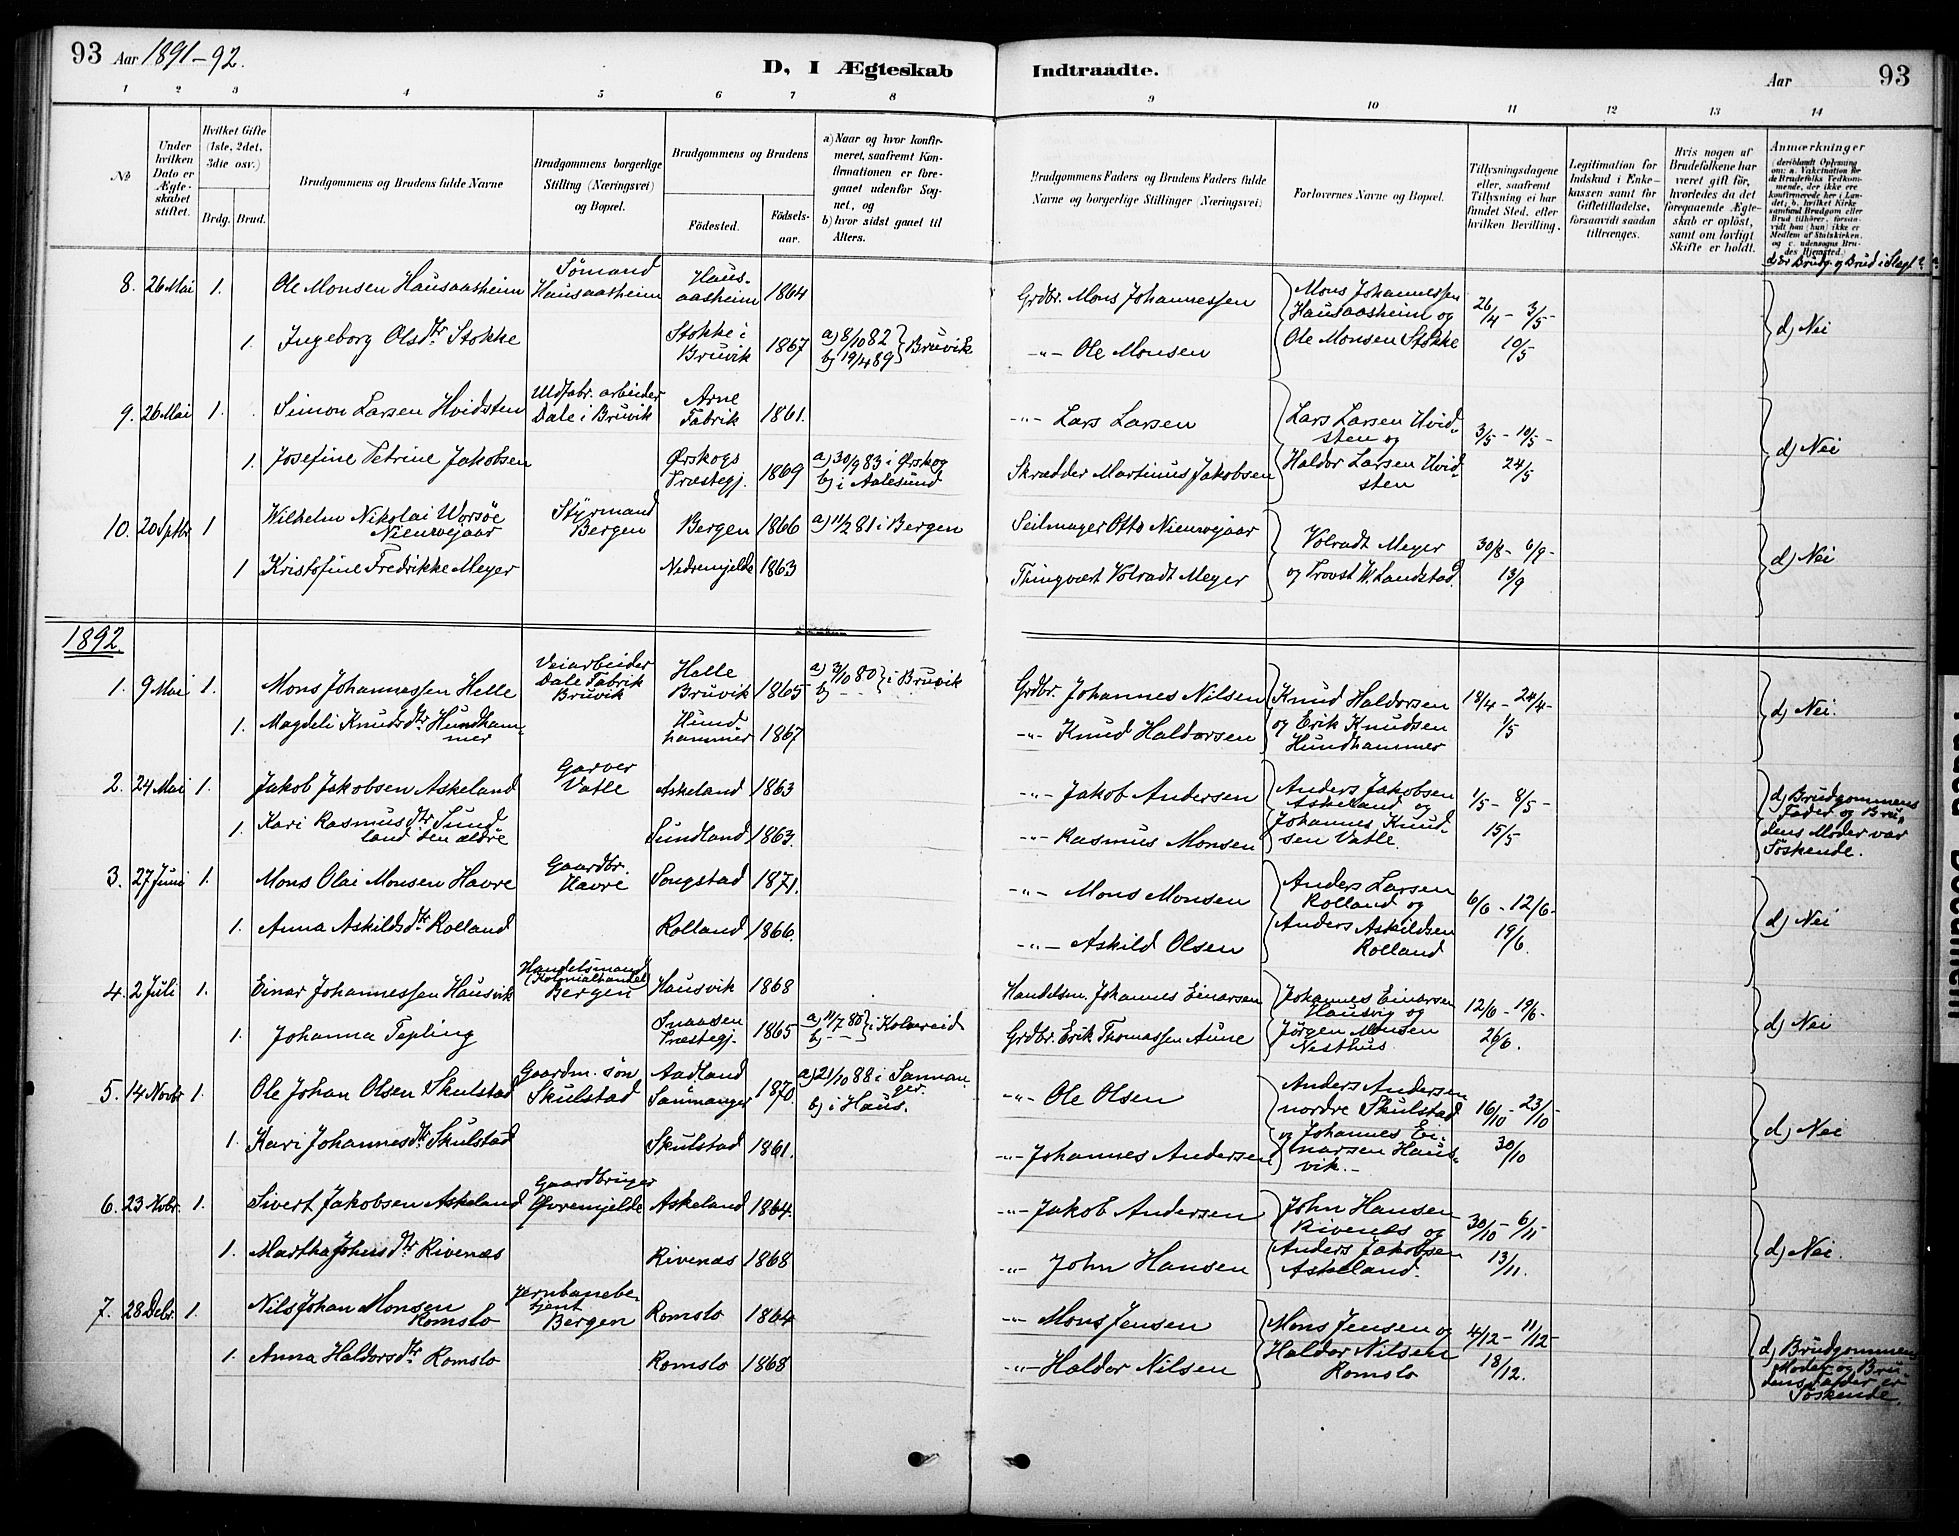 93 Aar 1891-92.
D, I Ægteskab Indtraadte.
Aar 93
1 2 3 4 5 6 7 8 9 10 11 12 13 14
No
Under hvilken Dato er Ægteskabet stiftet.
Hvilket Gifte (1ste, 2det, 3die osv.)
Brdg. Brud.
Brudgommens og Brudens fulde Navne
Brudgommens borgerlige Stilling (Næringsvei) og Bopæl.
Brudgommens og Brudens
Fødested. Fødselsaar.
a) Naar og hvor konfirmeret, saafremt Konfirmationen er foregaaet udenfor Sognet, og
b) hvor sidst gaaet til Alters.
Brudgommens Faders og Brudens Faders fulde Navne og borgerlige Stillinger (Næringsvei)
Forlovernes Navne og Bopæl.
Tillysningsdagene eller, saafremt Tillysning ei har fundet Sted, efter hvilken Bevilling.
Legitimation for Indskud i Enkekassen samt for Giftetilladelse, forsaavidt saadan tiltrænges.
Hvis nogen af Brudefolkene har været gift før, hvorledes da det foregaaende Ægteskab er opløst, samt om lovligt Skifte er holdt.
Anmærkninger
(deriblandt Oplysning om: a. Vakcination for de Brudefolks Vedkommende, der ikke ere konfirmerede her i Landet; b. hvilket Kirkesamfund Brudgom eller Brud tilhører, forsaavidt han (hun) ikke er Medlem af Statskirken, og c. udensogns Brudes Hjemsted.)
d. Er Brudg. og Brud i Slægt?
8. 26 Mai 1. Ole Monsen Hausaasheim Sømand Hausaasheim Hausaasheim 1864 Grdbr. Mons Johannessen Mons Johannessen Hausaasheim og Ole Monsen Stokke 26/4 - 3/5 - 10/5 d) Nei
1. Ingeborg Olsdtr Stokke Stokke i Bruvik 1867 a) 8/10 82 b) 19/4 89 Bruvik -"- Ole Monsen
9. 26 Mai 1. Simon Larsen Hvidsten Uldfabr. arbeider Dale i Bruvik Arne Fabrik 1861. -"- Lars Larsen Lars Larsen Hvidsten og Haldor Larsen Hvidsten 3/5 - 10/5 - 24/5 d) Nei
1. Josefine Petrine Jakobsen Ørskogs Præstegj. 1869 a) 30/9 83 i Ørskog b) i Aalesund Skrædder Martinus Jakobsen
10. 20 Sptbr 1 Wilhelm Nikolai Worsøe Nieuwejaar Styrmand Bergen Bergen 1866 a) 11/2 81 i Bergen Seilmager Otto Nieuwejaar Volradt Meyer og Provst W. Landstad. 30/8 - 6/9 - 13/9 d) Nei
1 Kristofine Fredrikke Meyer Nedremjelde 1863 Thingvært Volradt Meyer
1892
1. 9 Mai 1. Mons Johannessen Helle Veiarbeider Dale Fabrik Bruvik Helle Bruvik 1865 a) 3/10 80 b) - - i Bruvik Grdbr. Johannes Nilsen Knud Haldorsen og Erik Knudsen Hundhammer 18/4 - 24/4 - 1/5 d) Nei.
1. Magdeli Knudsdtr Hundhammer Hundhammer 1867 -"- Knud Haldorsen
2. 24 Mai 1. Jakob Jakobsen Askeland Garver Vatle Askeland 1863 -"- Jakob Andersen Anders Jakobsen Askeland og Johannes Knudsen Vatle. 1/5 - 8/5 - 15/5 d) Brudgommens Fader og Brudens Moder var Søskende.
1. Kari Rasmusdtr Sundland den ældre Sundland 1863. -"- Rasmus Monsen
3. 27 Juni 1. Mons Olai Monsen Havre Gaardbr. Havre Songstad 1871. -"- Mons Monsen Anders Larsen Rolland og Anders Askildsen Rolland 6/6 - 12/6 - 19/6. d) Nei
1. Anna Askildsdtr Rolland Rolland 1866. -"- Askild Olsen
4. 2 Juli 1. Einar Johannessen Hausvik Handelsmand (Kolonialhandel) Bergen Hausvik 1868 Handelsm. Johannes Einarsen Johannes Einarsen Hausvig og Jørgen Monsen Nesthus 12/6 - 19/6 - 26/6. d) Nei
1. Johanna Tepling Snaasen Præstegj. 1865 a) 11/7 80 b) - - i Kolvereid Grdbr. Erik Thomassen Aune
5. 14 Novbr 1. Ole Johan Olsen Skulstad Gaardm. søn Skulstad Aadland Samnanger 1870 a) 21/10 88 i Samnanger. b) i Haus. -"- Ole Olsen Anders Andersen nordre Skulstad og Johannes Einarsen Hausvik. - 16/10 - 23/10 - 30/10 d) Nei
1. Kari Johannesdtr Skulstad Skulstad 1861. -"- Johannes Andersen
6. 23 Nvbr. 1. Sivert Jakobsen Askeland Gaardbruger Øvremjelde Askeland 1864. -"- Jakob Andersen John Hansen Rivenæs og Anders Jakobsen Askeland. 30/10 - 6/11 - 13/11. d) Nei.
1. Martha Johnsdtr Rivenæs Rivenæs 1868 -"- John Hansen
7. 28 Debr. 1. Nils Johan Monsen Romslo Jernbanebetjent Bergen Romslo 1864 -"- Mons Jensen Mons Jensen og Haldor Nilsen Romslo 4/12 - 11/12 - 18/12. d) Brudgommens Moder og Brudens Fader er Søskende.
1. Anna Haldorsdtr Romslo Romslo 1868 -"- Haldor Nilsen